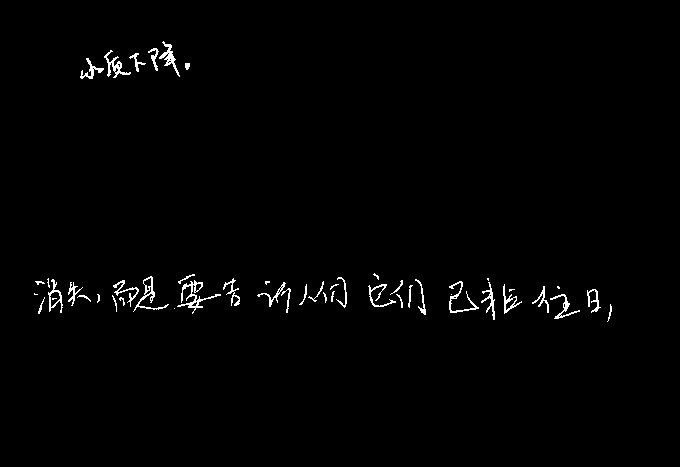 水质下降。
消失,而是要告诉人们它们已非往日,